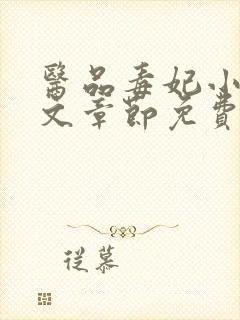 醫品毒妃小
文章節免費
從慕